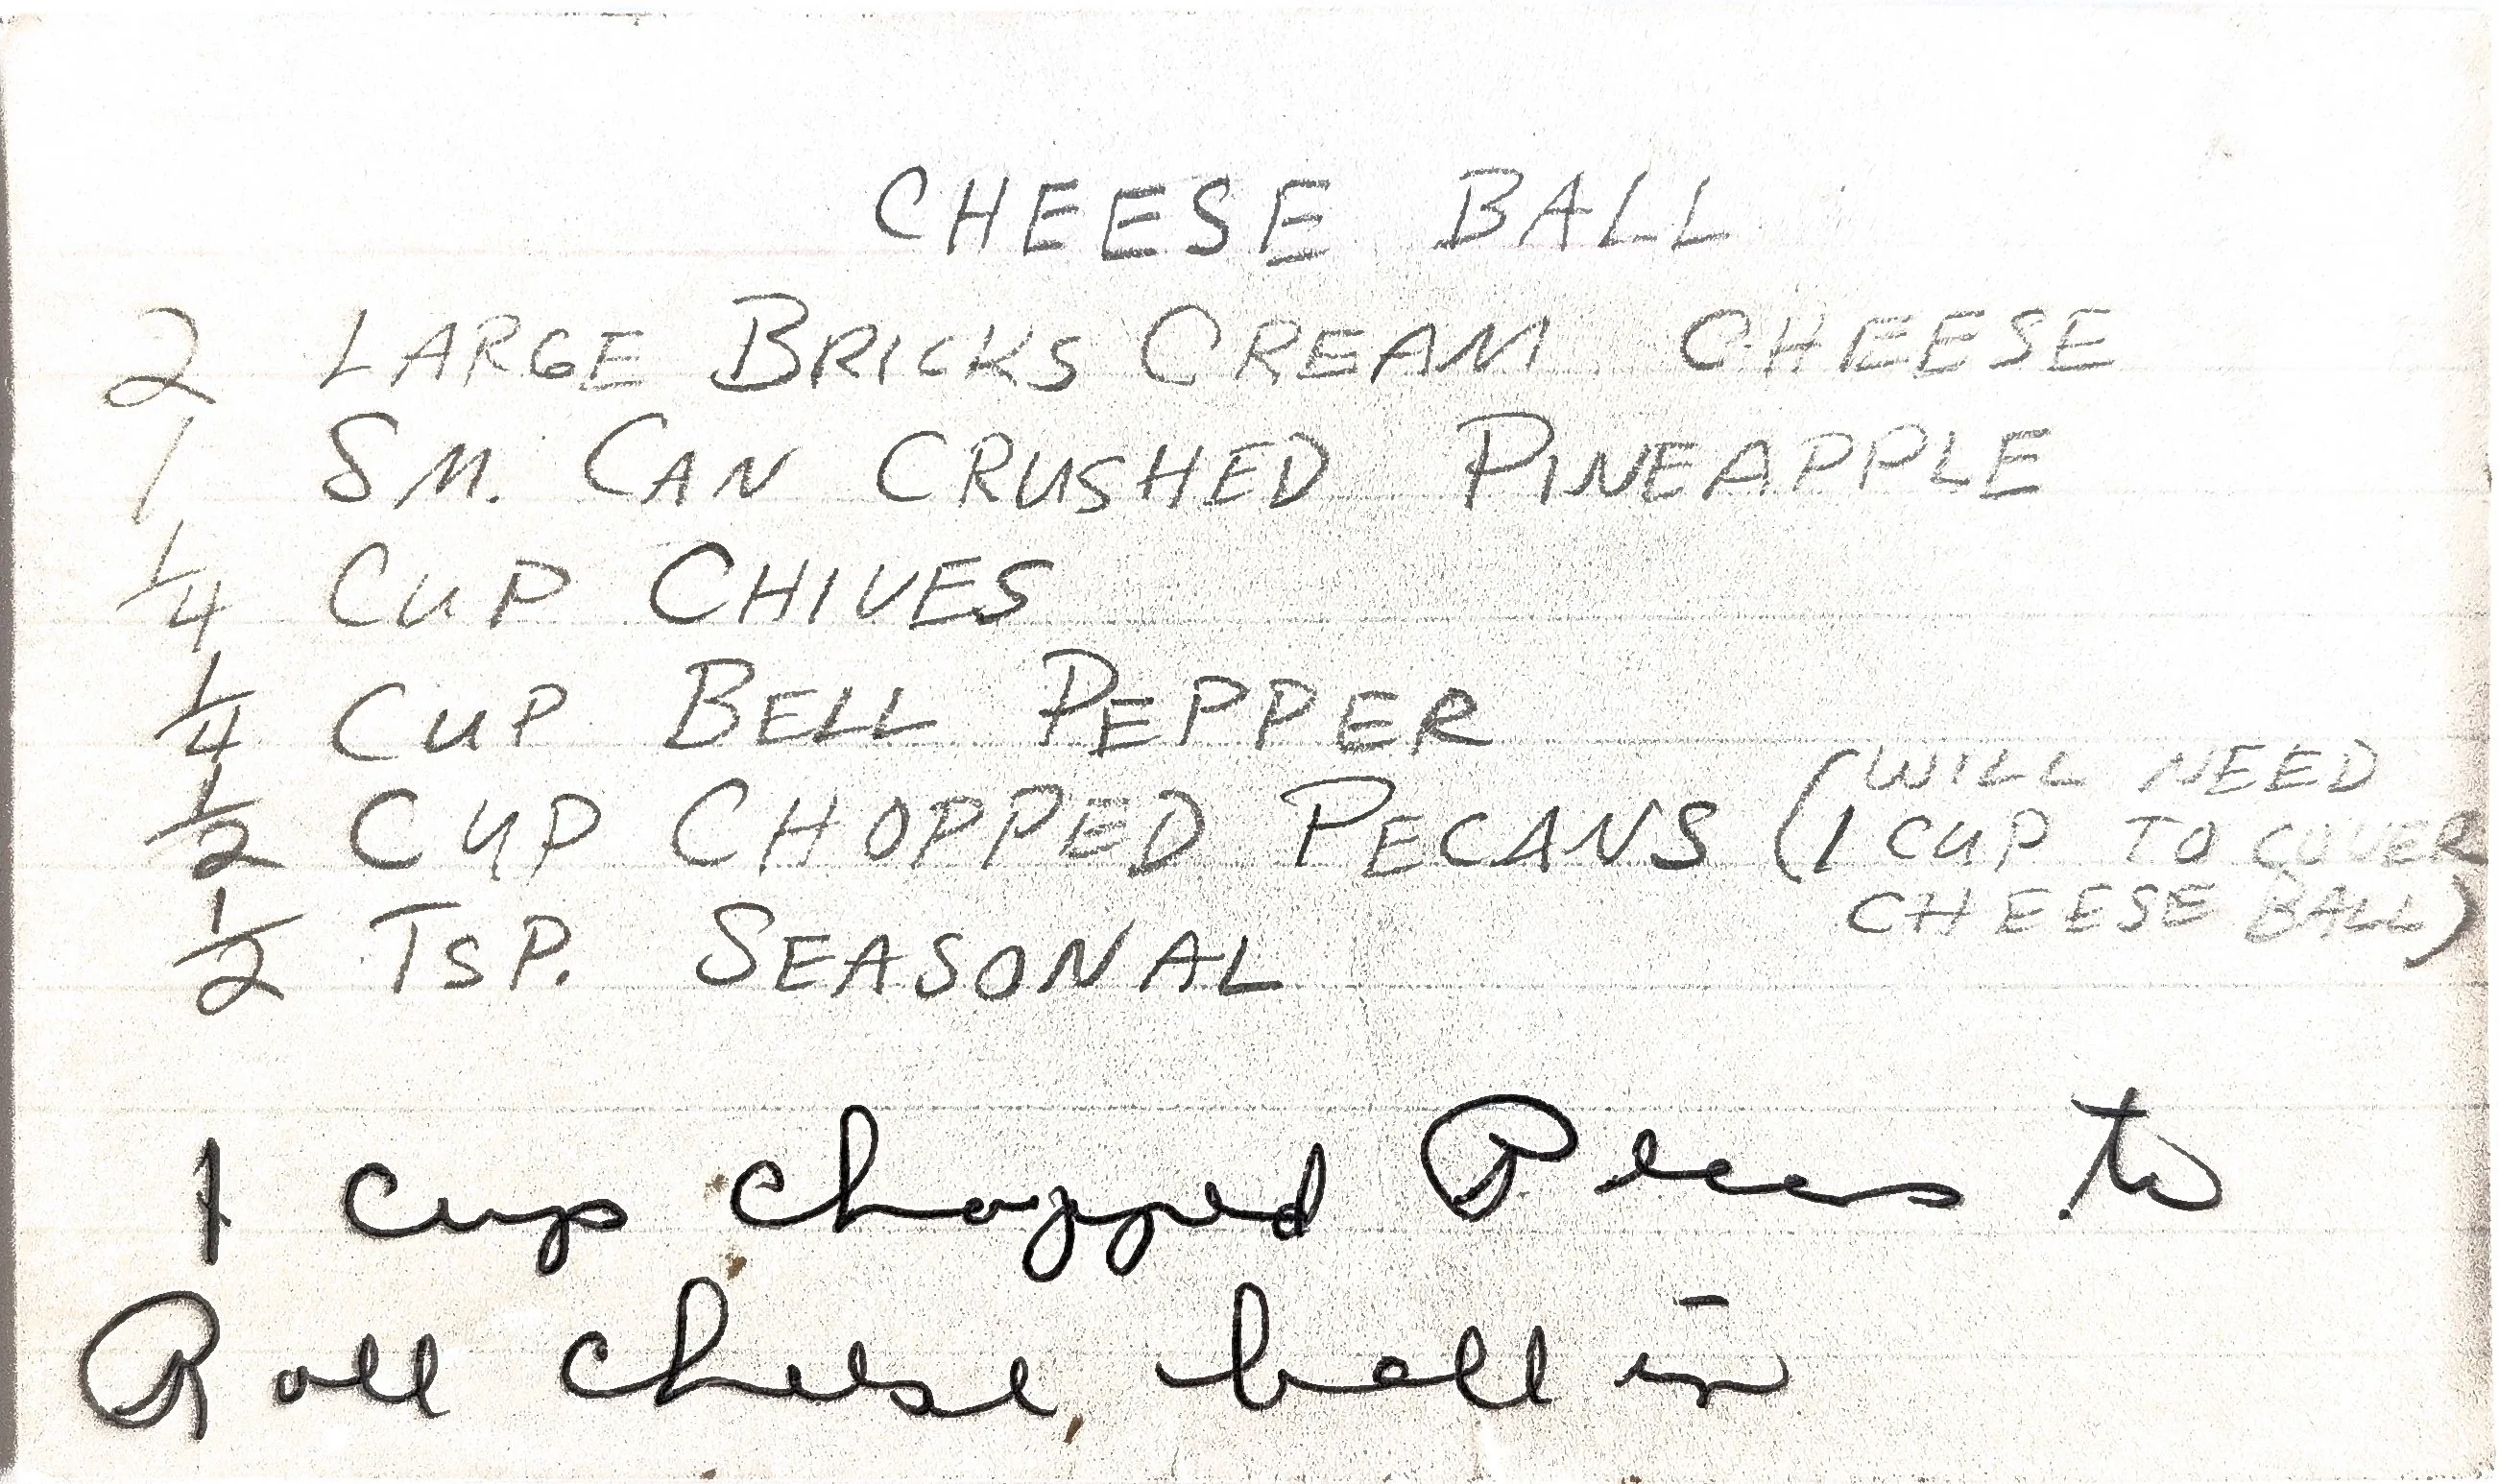 CHEESE BALL
2 LARGE BRICKS CREAM CHEESE
1 SM. CAN CRUSHED PINEAPPLE
1/4 CUP CHIVES
1/4 CUP BELL PEPPER
1/2 CUP CHOPPED PECANS (WILL NEED
1 CUP TO COVER
CHEESE BALL)
1/2 TSP. SEASONAL
1 cup chopped Pecans to
Roll cheese ball in